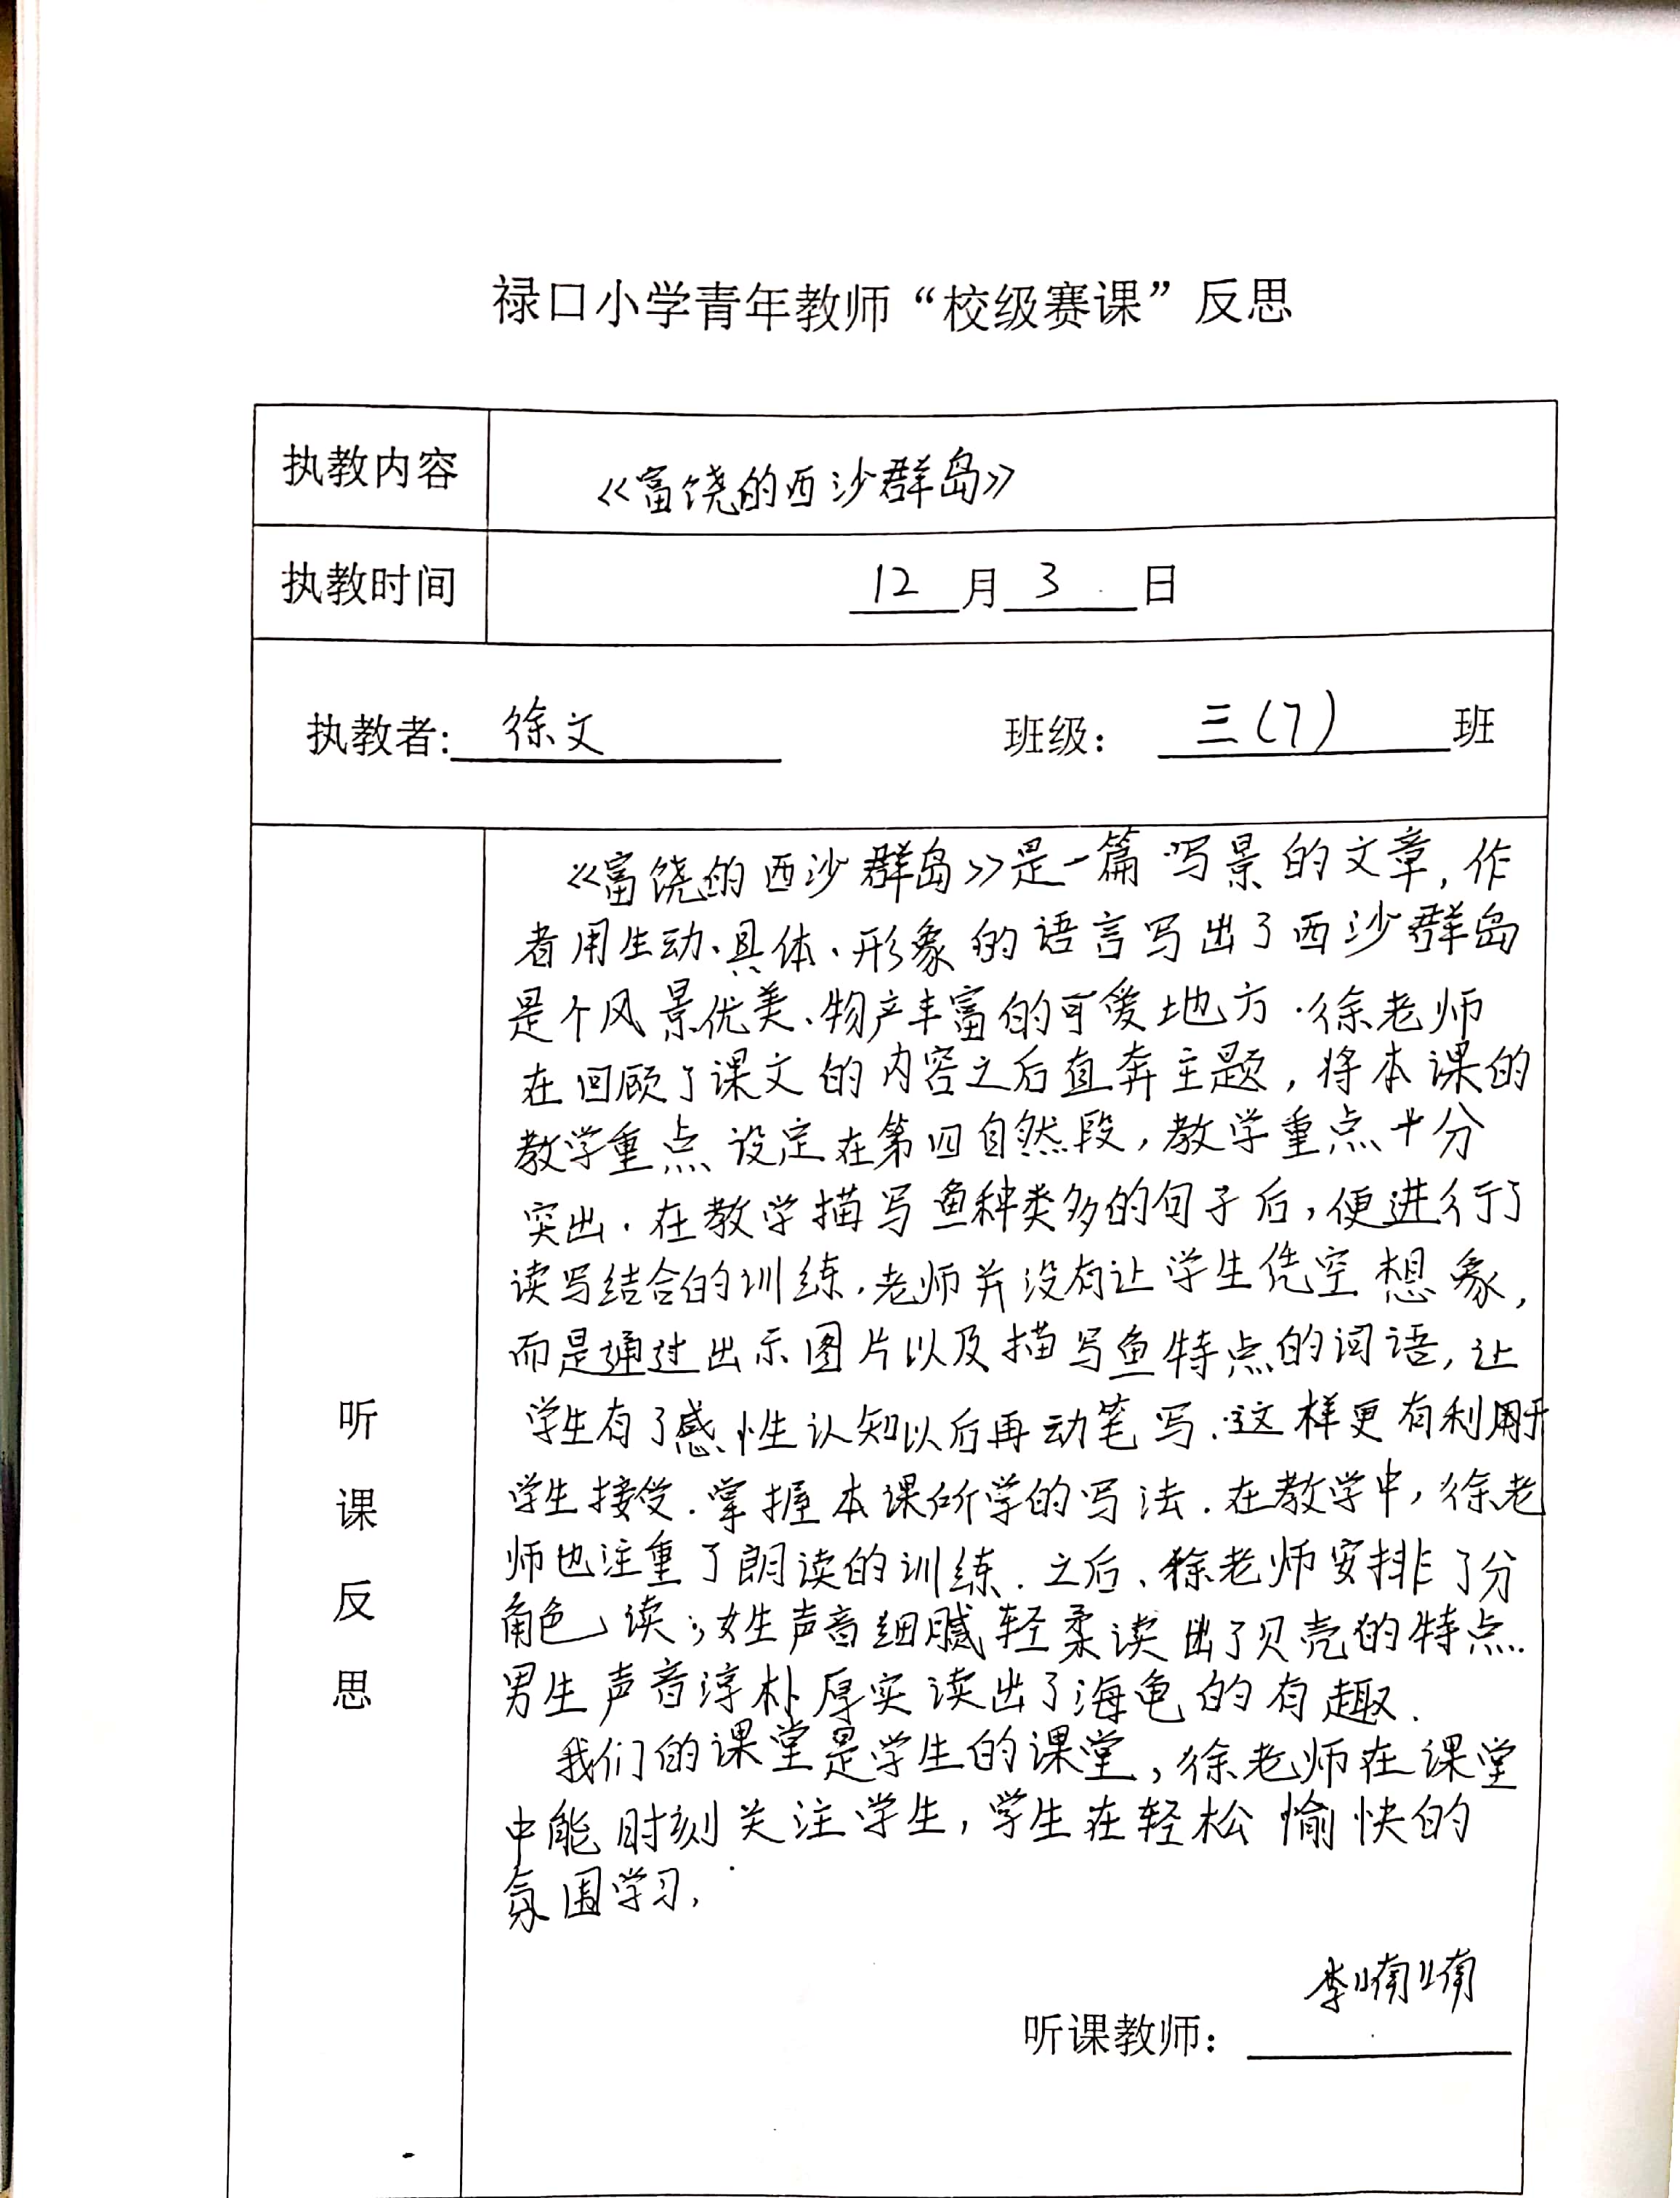 禄口小学青年教师“校级赛课”反思
执教内容
《富饶的西沙群岛》
执教时间
12月3日
执教者:徐文 班级：三(7)班
听课反思
《富饶的西沙群岛》是一篇写景的文章,作
者用生动、具体、形象的语言写出了西沙群岛
是个风景优美、物产丰富的可爱地方.徐老师
在回顾了课文的内容之后直奔主题,将本课的
教学重点设定在第四自然段,教学重点十分
突出.在教学描写鱼种类多的句子后,便进行了
读写结合的训练.老师并没有让学生凭空想象,
而是通过出示图片以及描写鱼特点的词语,让
学生有了感性认知以后再动笔写.这样更有利用于
学生接受.掌握本课所学的写法.在教学中,徐老
师也注重了朗读的训练.之后、徐老师安排了分
角色读;女生声音细腻轻柔读出了贝壳的特点.
男生声音淳朴厚实读出了海龟的有趣.
我们的课堂是学生的课堂,徐老师在课堂
中能时刻关注学生,学生在轻松愉快的
氛围学习.
李
听课教师：